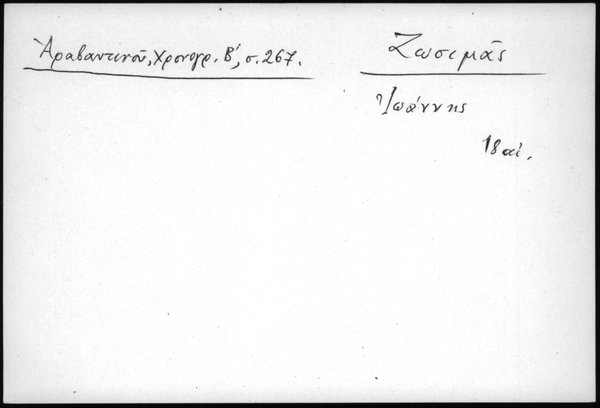 Ἀραβαντινοῦ, Χρονογρ. Β΄, σ. 267.
Ζωσιμᾶς
Ἰωάννης
18 αἰ.